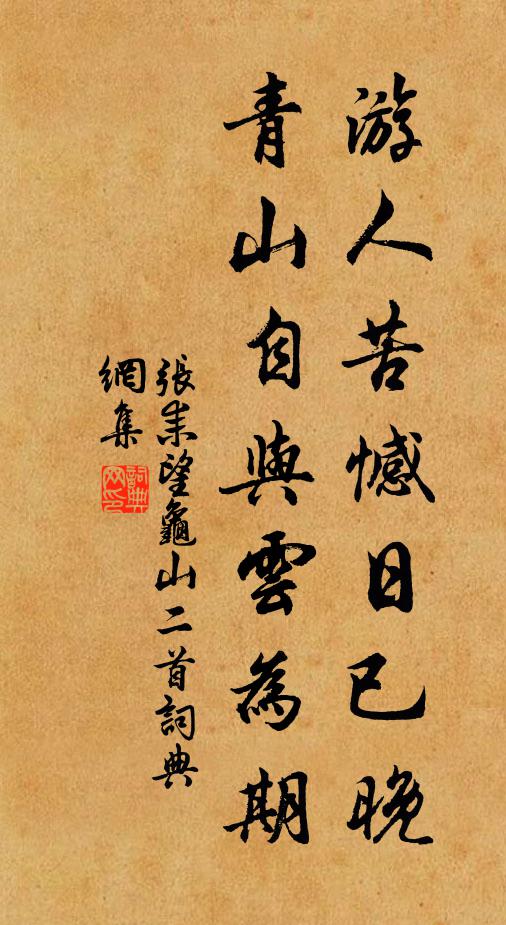 游人苦憾日已晚
青山自與雲為期
張耒望龜山二首詞典
網集
詞典
网印